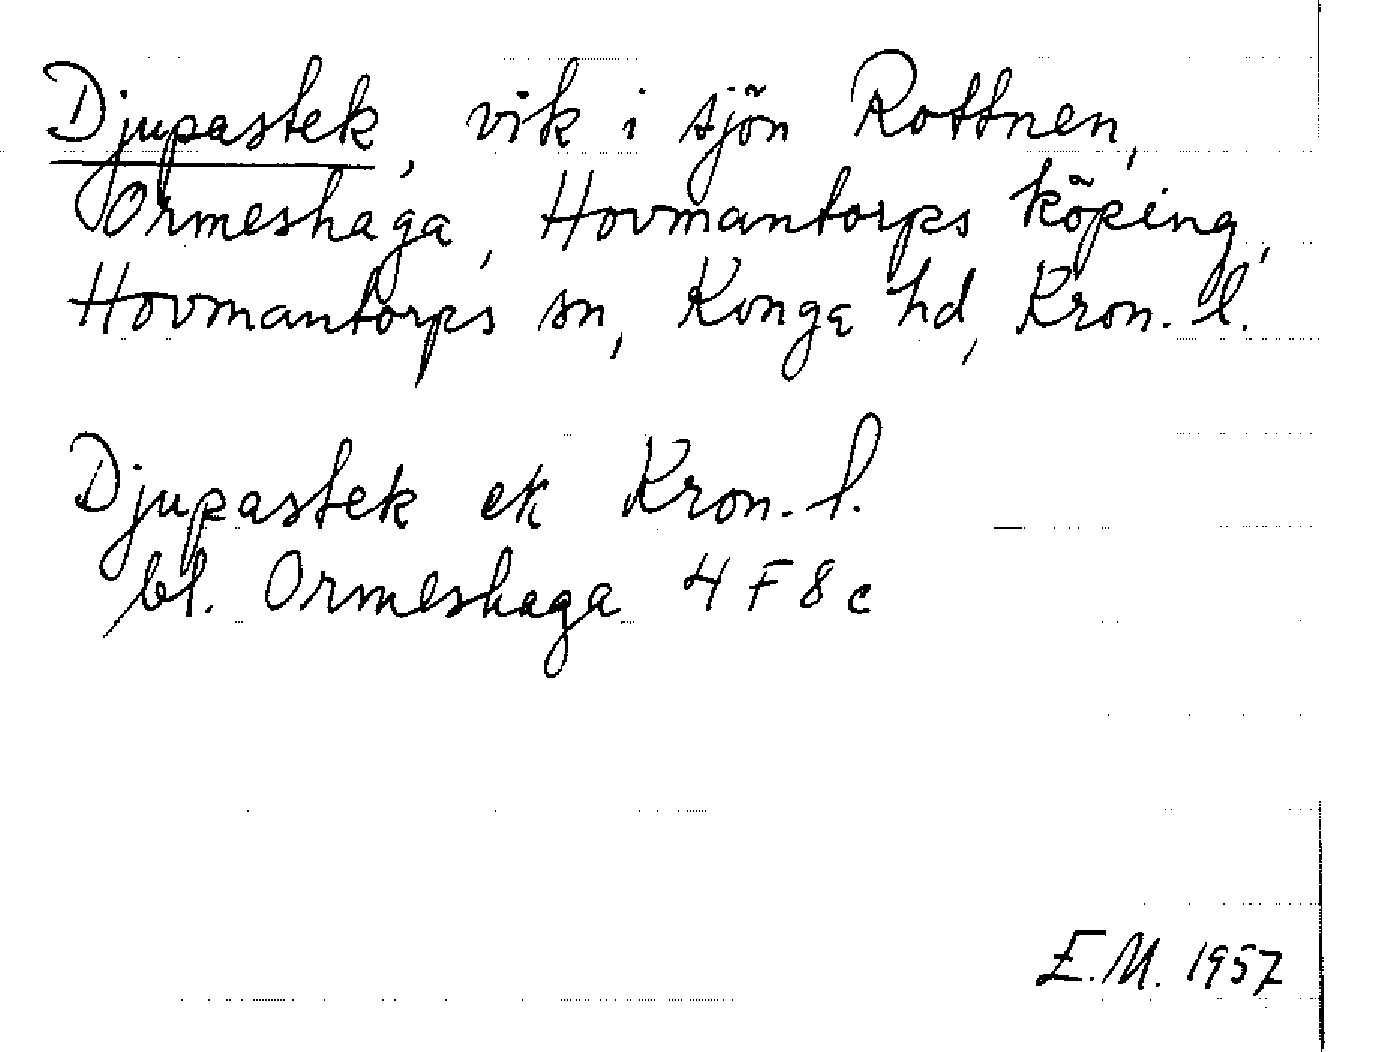 Djupastek, vik i sjön Rottnen,
Ormeshaga, Hovmantorps köping,
Hovmantorps sn, Konga hd, Kron. l.
Djupastek ek Kron. l.
bl. Ormeshaga 4 F 8 c
E.M. 1957